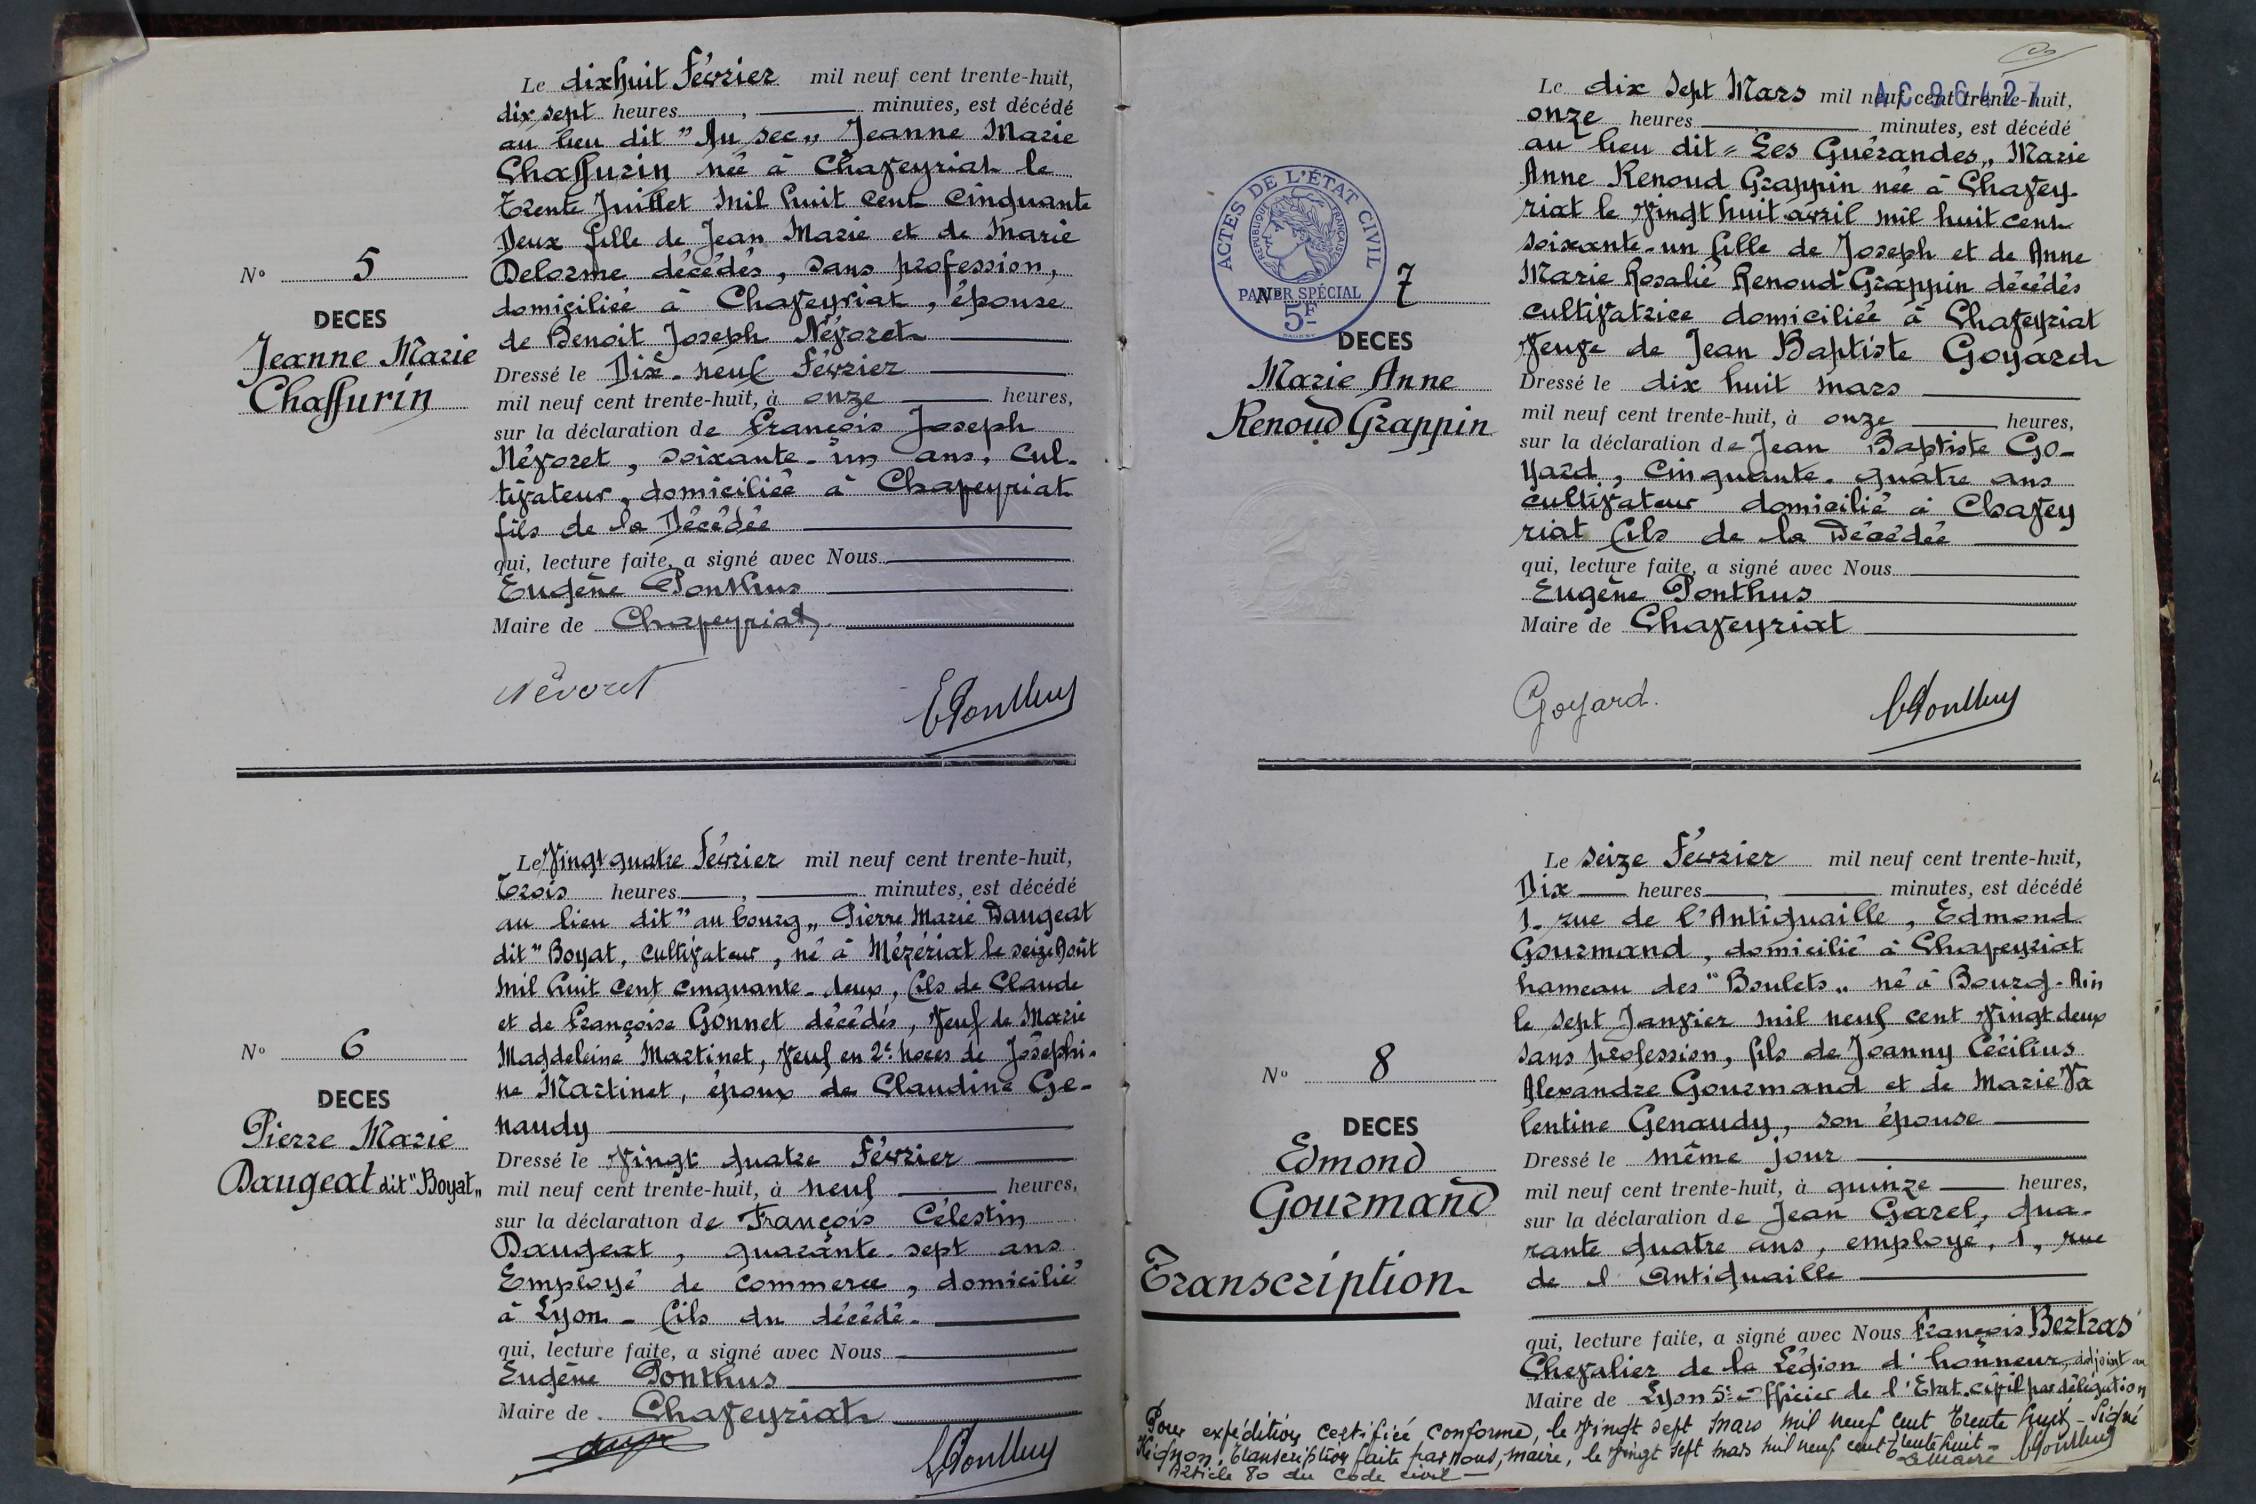 Le dixhuit Février mil neuf cent trente-huit,
dix sept heures, minutes, est décédé
au lieu dit " Au sec " Jeanne Marie
Chaffurin née à Chaveyriat le
Trente Juillet Mil huit cent Cinquante
Deux fille de Jean Marie et de Marie
Delorme décédés, sans profession,
domiciliée à Chaveyriat, épouse
de Benoit Joseph Névoret
N° 5
DECES
Jeanne Marie
Chaffurin
Dressé le Dix-neuf Février
mil neuf cent trente-huit, à onze heures,
sur la déclaration de François Joseph
Névoret, soixante-un ans, cul-
tivateur, domiciliée à Chaveyriat
fils de la Décédée
qui, lecture faite, a signé avec Nous
Eugène Ponthus
Maire de Chaveyriat
Névoret
EPonthus
Le Vingt quatre Février mil neuf cent trente-huit,
Trois heures, minutes, est décédé
au lieu dit " au bourg " Pierre Marie Daugeat
dit " Boyat, cultivateur, né à Mézériat le seize Août
Mil huit cent cinquante-deux, fils de Claude
et de Françoise Gonnet décédés, Veuf de Marie
Magdeleine Martinet, Veuf en 2e noces de Joséphi-
ne Martinet, époux de Claudine Ge-
naudy
N° 6
DECES
Pierre Marie
Daugeat dit " Boyat "
Dressé le Vingt quatre Février
mil neuf cent trente-huit, à neuf heures,
sur la déclaration de François Célestin
Daugeat, quarante-sept ans
Employé de commerce, domicilié
à Lyon - fils du décédé.
qui, lecture faite, a signé avec Nous
Eugène Ponthus
Maire de Chaveyriat
EPonthus
AC 96427
Le dix sept Mars mil neuf cent trente-huit,
onze heures minutes, est décédé
au lieu dit " Les Guérandes " Marie
Anne Renoud Grappin née à Chavey-
riat le Vingt huit avril mil huit cent
soixante-un fille de Joseph et de Anne
Marie Rosalie Renoud Grappin décédés
cultivatrice domiciliée à Chaveyriat
Veuve de Jean Baptiste Goyard
ACTES DE L'ÉTAT CIVIL
RÉPUBLIQUE FRANÇAISE
PAPIER SPÉCIAL
5F
N° 7
DECES
Marie Anne
Renoud Grappin
Dressé le dix huit mars
mil neuf cent trente-huit, à onze heures,
sur la déclaration de Jean Baptiste Go-
yard, cinquante-quatre ans
cultivateur domicilié à Chavey
riat fils de la Décédée
qui, lecture faite, a signé avec Nous
Eugène Ponthus
Maire de Chaveyriat
Goyard.
EPonthus
Le seize Février mil neuf cent trente-huit,
Dix heures, minutes, est décédé
1, rue de l'Antiquaille, Edmond
Gourmand, domicilié à Chaveyriat
hameau des " Boulets " né à Bourg-Ain
le sept Janvier mil neuf cent Vingt deux
sans profession, fils de Joanny Cécilius
Alexandre Gourmand et de Marie Va
lentine Genaudy, son épouse
N° 8
DECES
Edmond
Gourmand
Transcription
Dressé le même jour
mil neuf cent trente-huit, à quinze heures,
sur la déclaration de Jean Garel, qua-
rante quatre ans, employé, 1, rue
de l'Antiquaille
qui, lecture faite, a signé avec Nous François Bertras
Chevalier de la Légion d'honneur, adjoint au
Maire de Lyon 5e officier de l'Etat-civil par délégation
Pour expédition certifiée conforme, le Vingt sept mars mil neuf cent trente huit - Signé
Transcription faite par nous, maire, le Vingt sept mars mil neuf cent trente huit -
Article 80 du Code civil - Le Maire EPonthus